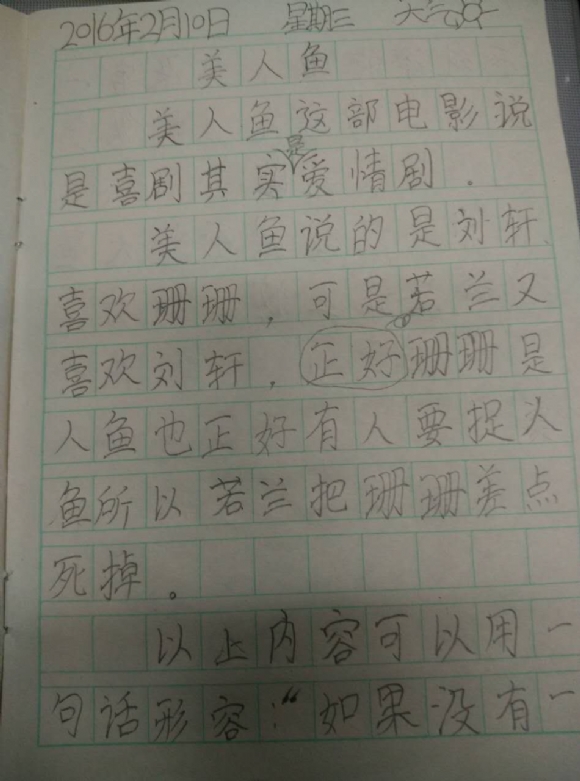 2016年2月10日 星期三 天气
美人鱼
美人鱼这部电影说
是喜剧其实是爱情剧。
美人鱼说的是刘轩
喜欢珊珊，可是若兰又
喜欢刘轩，正好珊珊是
人鱼也正好有人要捉人
鱼所以若兰把珊珊差点
死掉。
以上内容可以用一
句话形容：“如果没有一